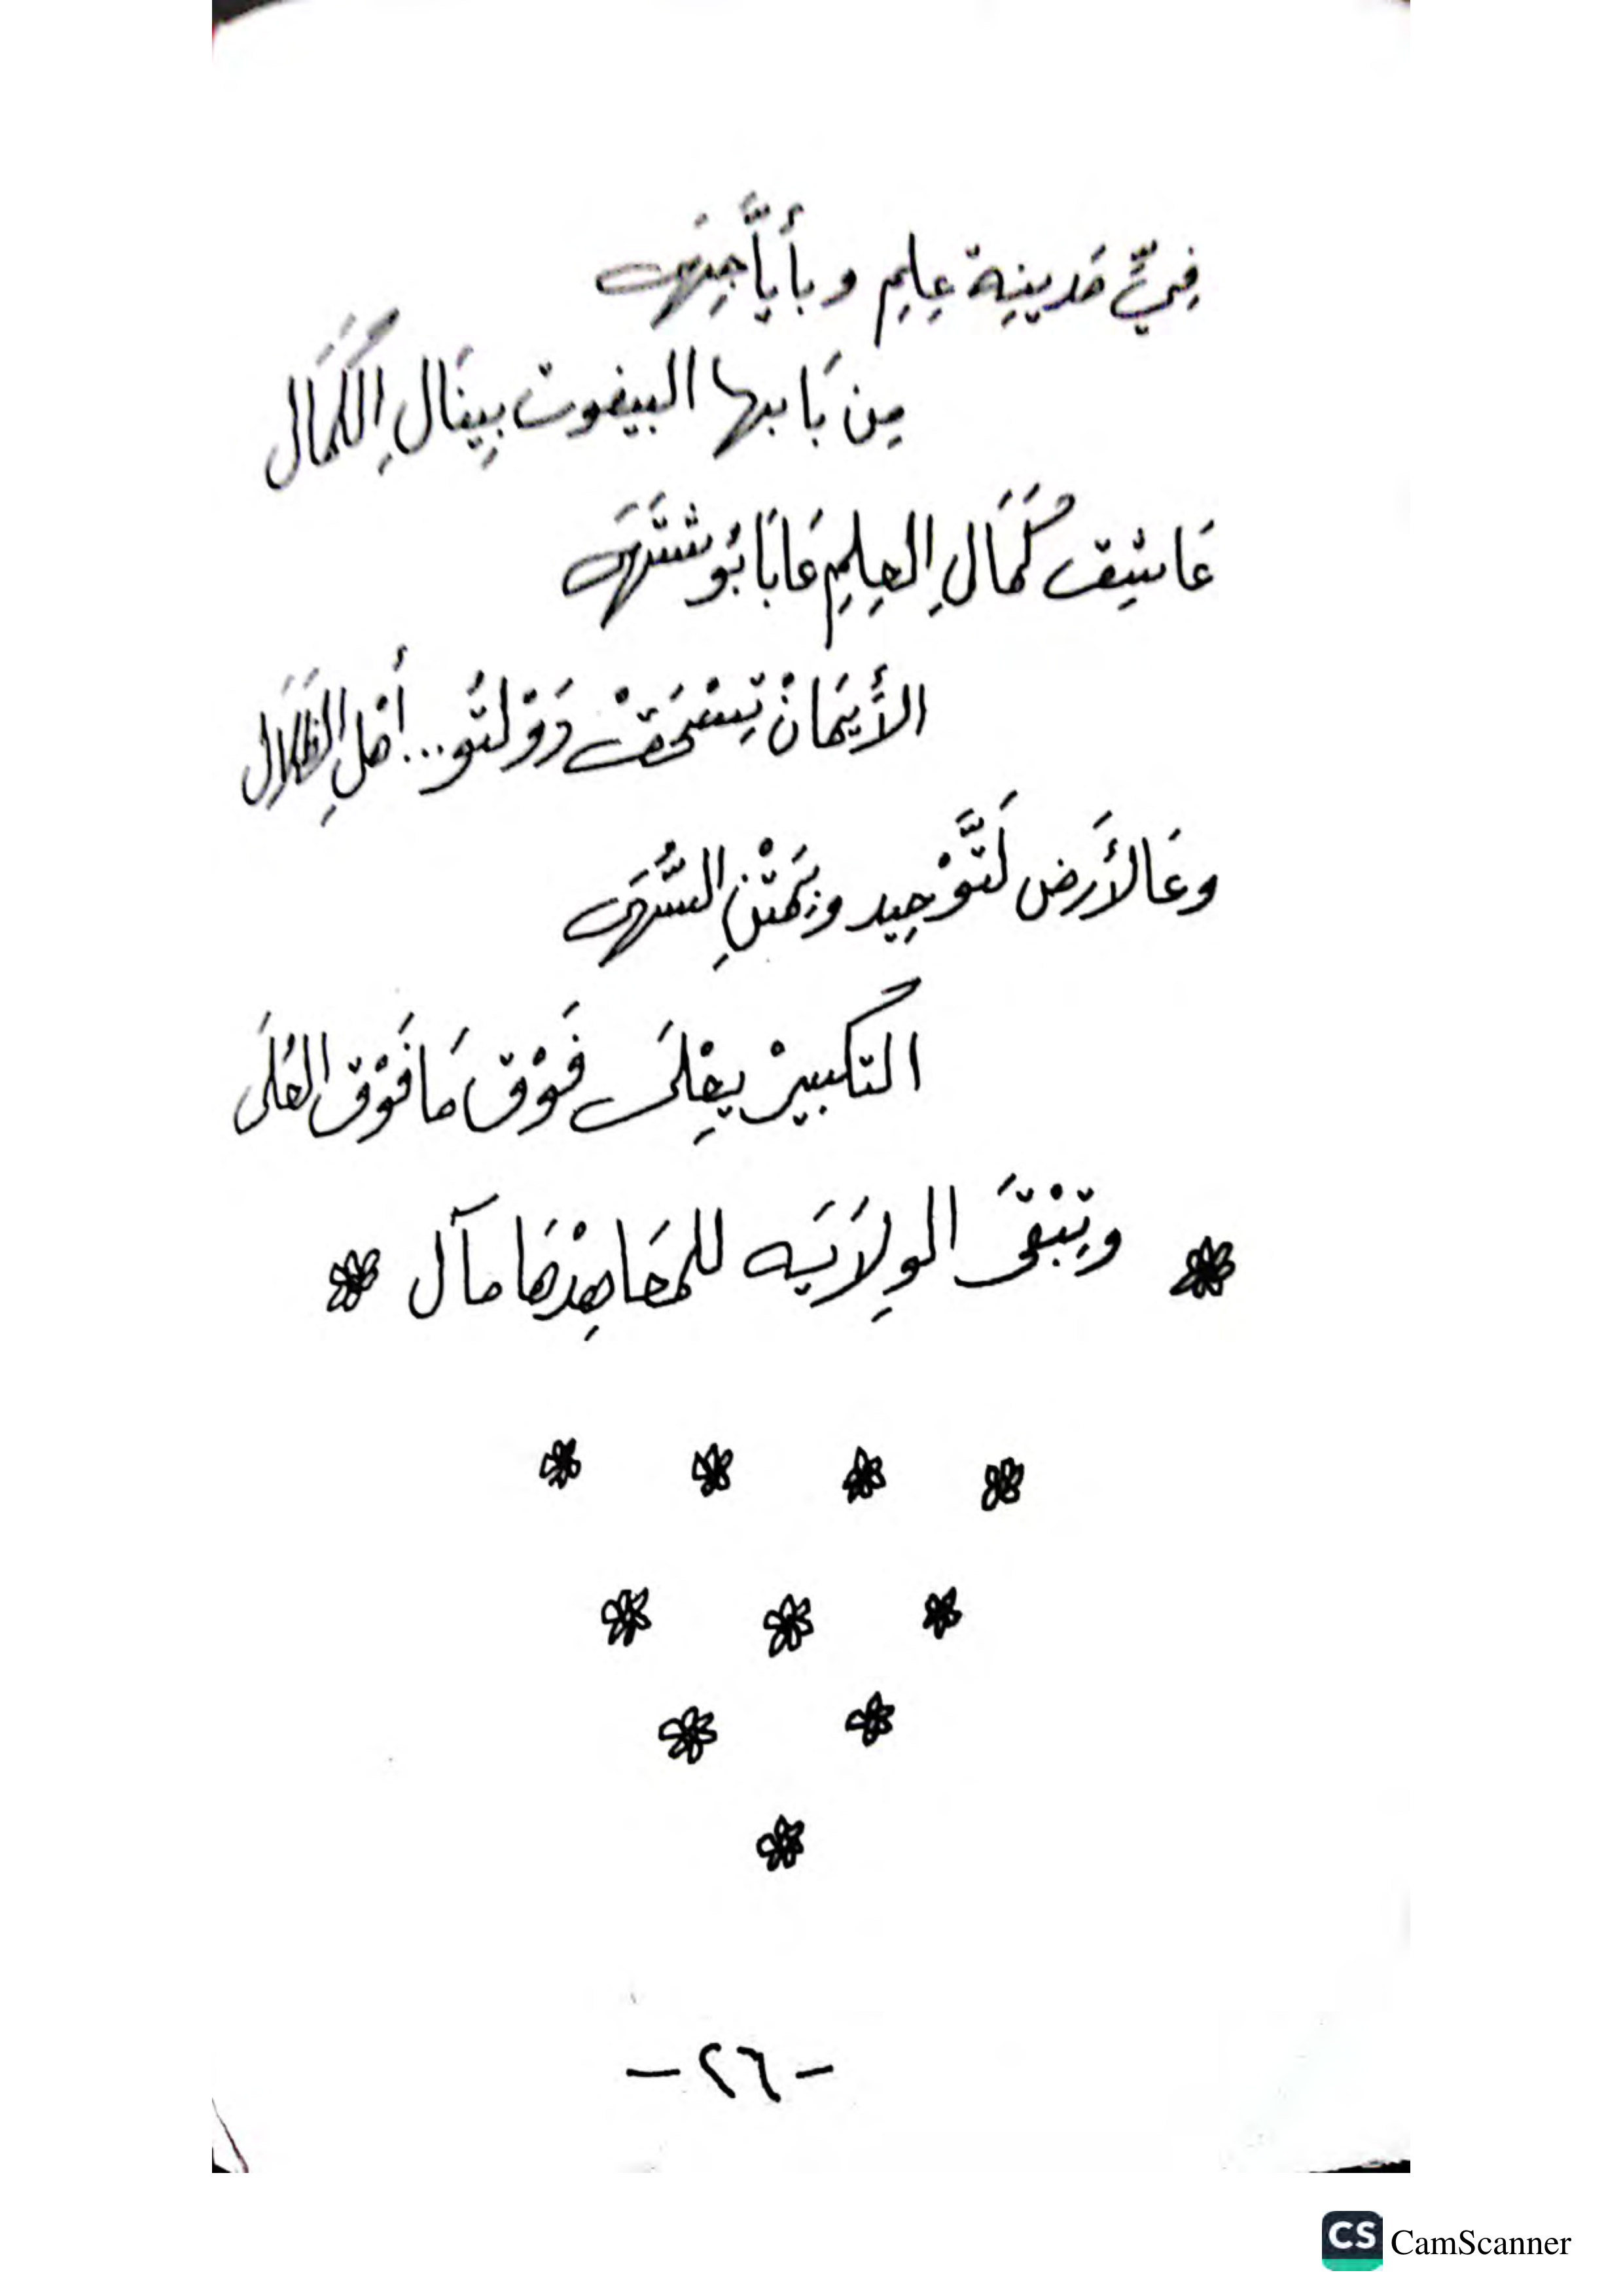 فِيِّ مَدينِة عِلِم وبأيَّا جِهَى
مِن بَابها البيفوت بِينَال اِلكَمَال
عَاشِق كَمَالِ العِلِم عَابَابُو شتَهَى
الأَيمَانْ تِسْحَقْ دَوْلتُو... أهْلِ الظَلَال
وعَالأَرض لَتَّوْحِيد وبَمَتْنِ السُّهَى
التكبيرْ يعْلِى فَوْق مَا فَوْق العُلَى
* وتِبْقَى الولِايَه للمعَاهِدْهَا مآل *
* * * *
* * *
* *
*
- ٢٦ -
CS CamScanner